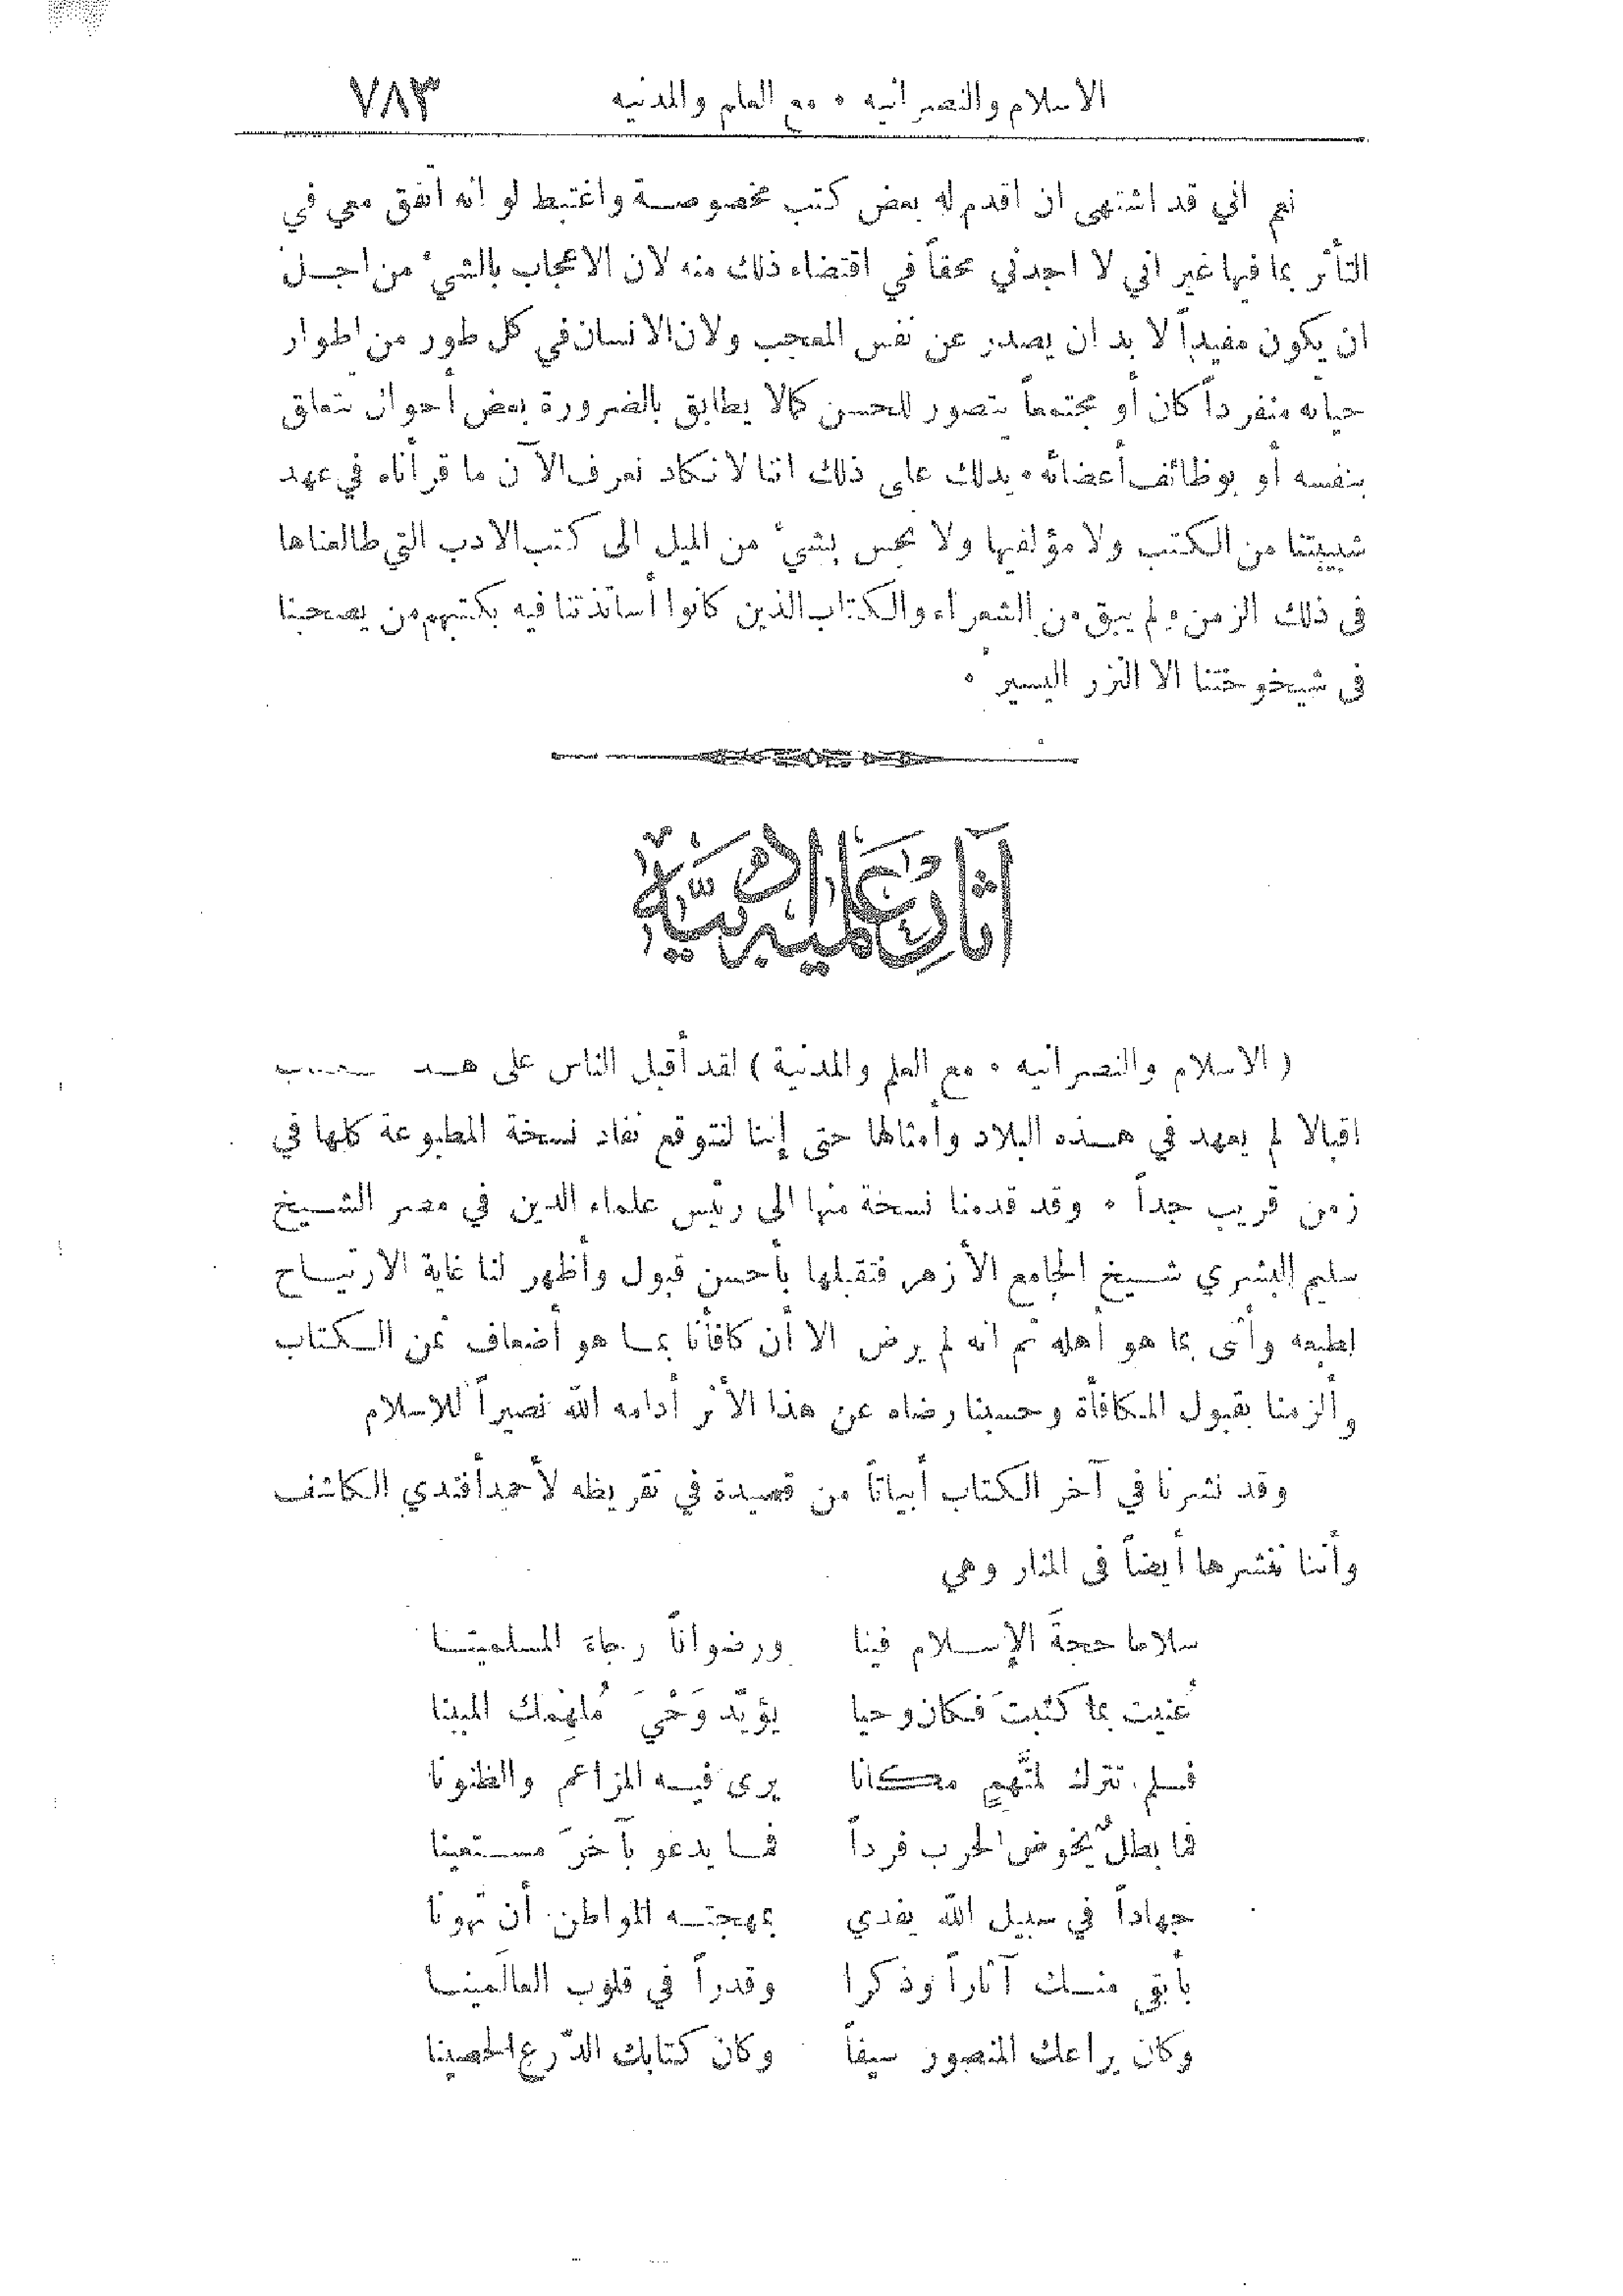 الاسلام والنصرانيه ٠ مع العلم والمدنيه ٧٨٣
نعم اني قد اشتهى ان اقدم له بعض كتب مخصوصة واغتبط لو انه اتفق معي في
التأثر بما فيها غير اني لا اجدني محقاً في اقتضاء ذلك منه لان الاعجاب بالشيء من اجل
ان يكون مفيداً لا بد ان يصدر عن نفس المعجب ولان الانسان في كل طور من اطوار
حياته منفرداً كان أو مجتمعاً يتصور للحسن كمالا يطابق بالضرورة بعض أحوال تتعلق
بنفسه أو بوظائف أعضائه ٠ يدلك على ذلك اننا لا نكاد نعرف الآن ما قرأناه في عهد
شبيبتنا من الكتب ولا مؤلفيها ولا نحس بشيء من الميل الى كتب الادب التي طالعناها
فى ذلك الزمن ولم يبق من الشعراء والكتاب الذين كانوا أساتذتنا فيه بكتبهم من يصحبنا
فى شيخوختنا الا النزر اليسير ٠
آثار علمية أدبية
( الاسلام والنصرانيه ٠ مع العلم والمدنية ) لقد أقبل الناس على
اقبالا لم يعهد في هذه البلاد وأمثالها حتى إننا لنتوقع نفاد نسخة المطبوعة كلها في
زمن قريب جداً ٠ وقد قدمنا نسخة منها الى رئيس علماء الدين في مصر الشيخ
سليم البشري شيخ الجامع الأزهر فتقبلها بأحسن قبول وأظهر لنا غاية الارتياح
لطبعه وأثنى بما هو أهله ثم انه لم يرض الا أن كافأنا بما هو أضعاف ثمن الكتاب
وألزمنا بقبول المكافأة وحسبنا رضاه عن هذا الأثر أدامه الله نصيراً للاسلام
وقد نشرنا في آخر الكتاب أبياتاً من قصيدة في تقريظه لأحمد أفندي الكاشف
وأننا ننشرها أيضاً فى المنار وهي
سلاما حجةَ الإسلام فينا ورضواناً رجاءَ المسلمينا
عُنيت بما كتبتَ فكان وحيا يؤيّد وَحْيَ مُلهِمك المبينا
فلم تترك لمتَّهمٍ مكانا يرى فيه المزاعم والظنونا
فما بطلٌ يخوض الحرب فرداً فما يدعو بآخرَ مستعينا
جهاداً في سبيل الله يفدي بمهجته المواطن أن تهونا
بأبقى منك آثاراً وذكرا وقدراً في قلوب العالَمينا
وكان يراعك المنصور سيفاً وكان كتابك الدّرع الحصينا